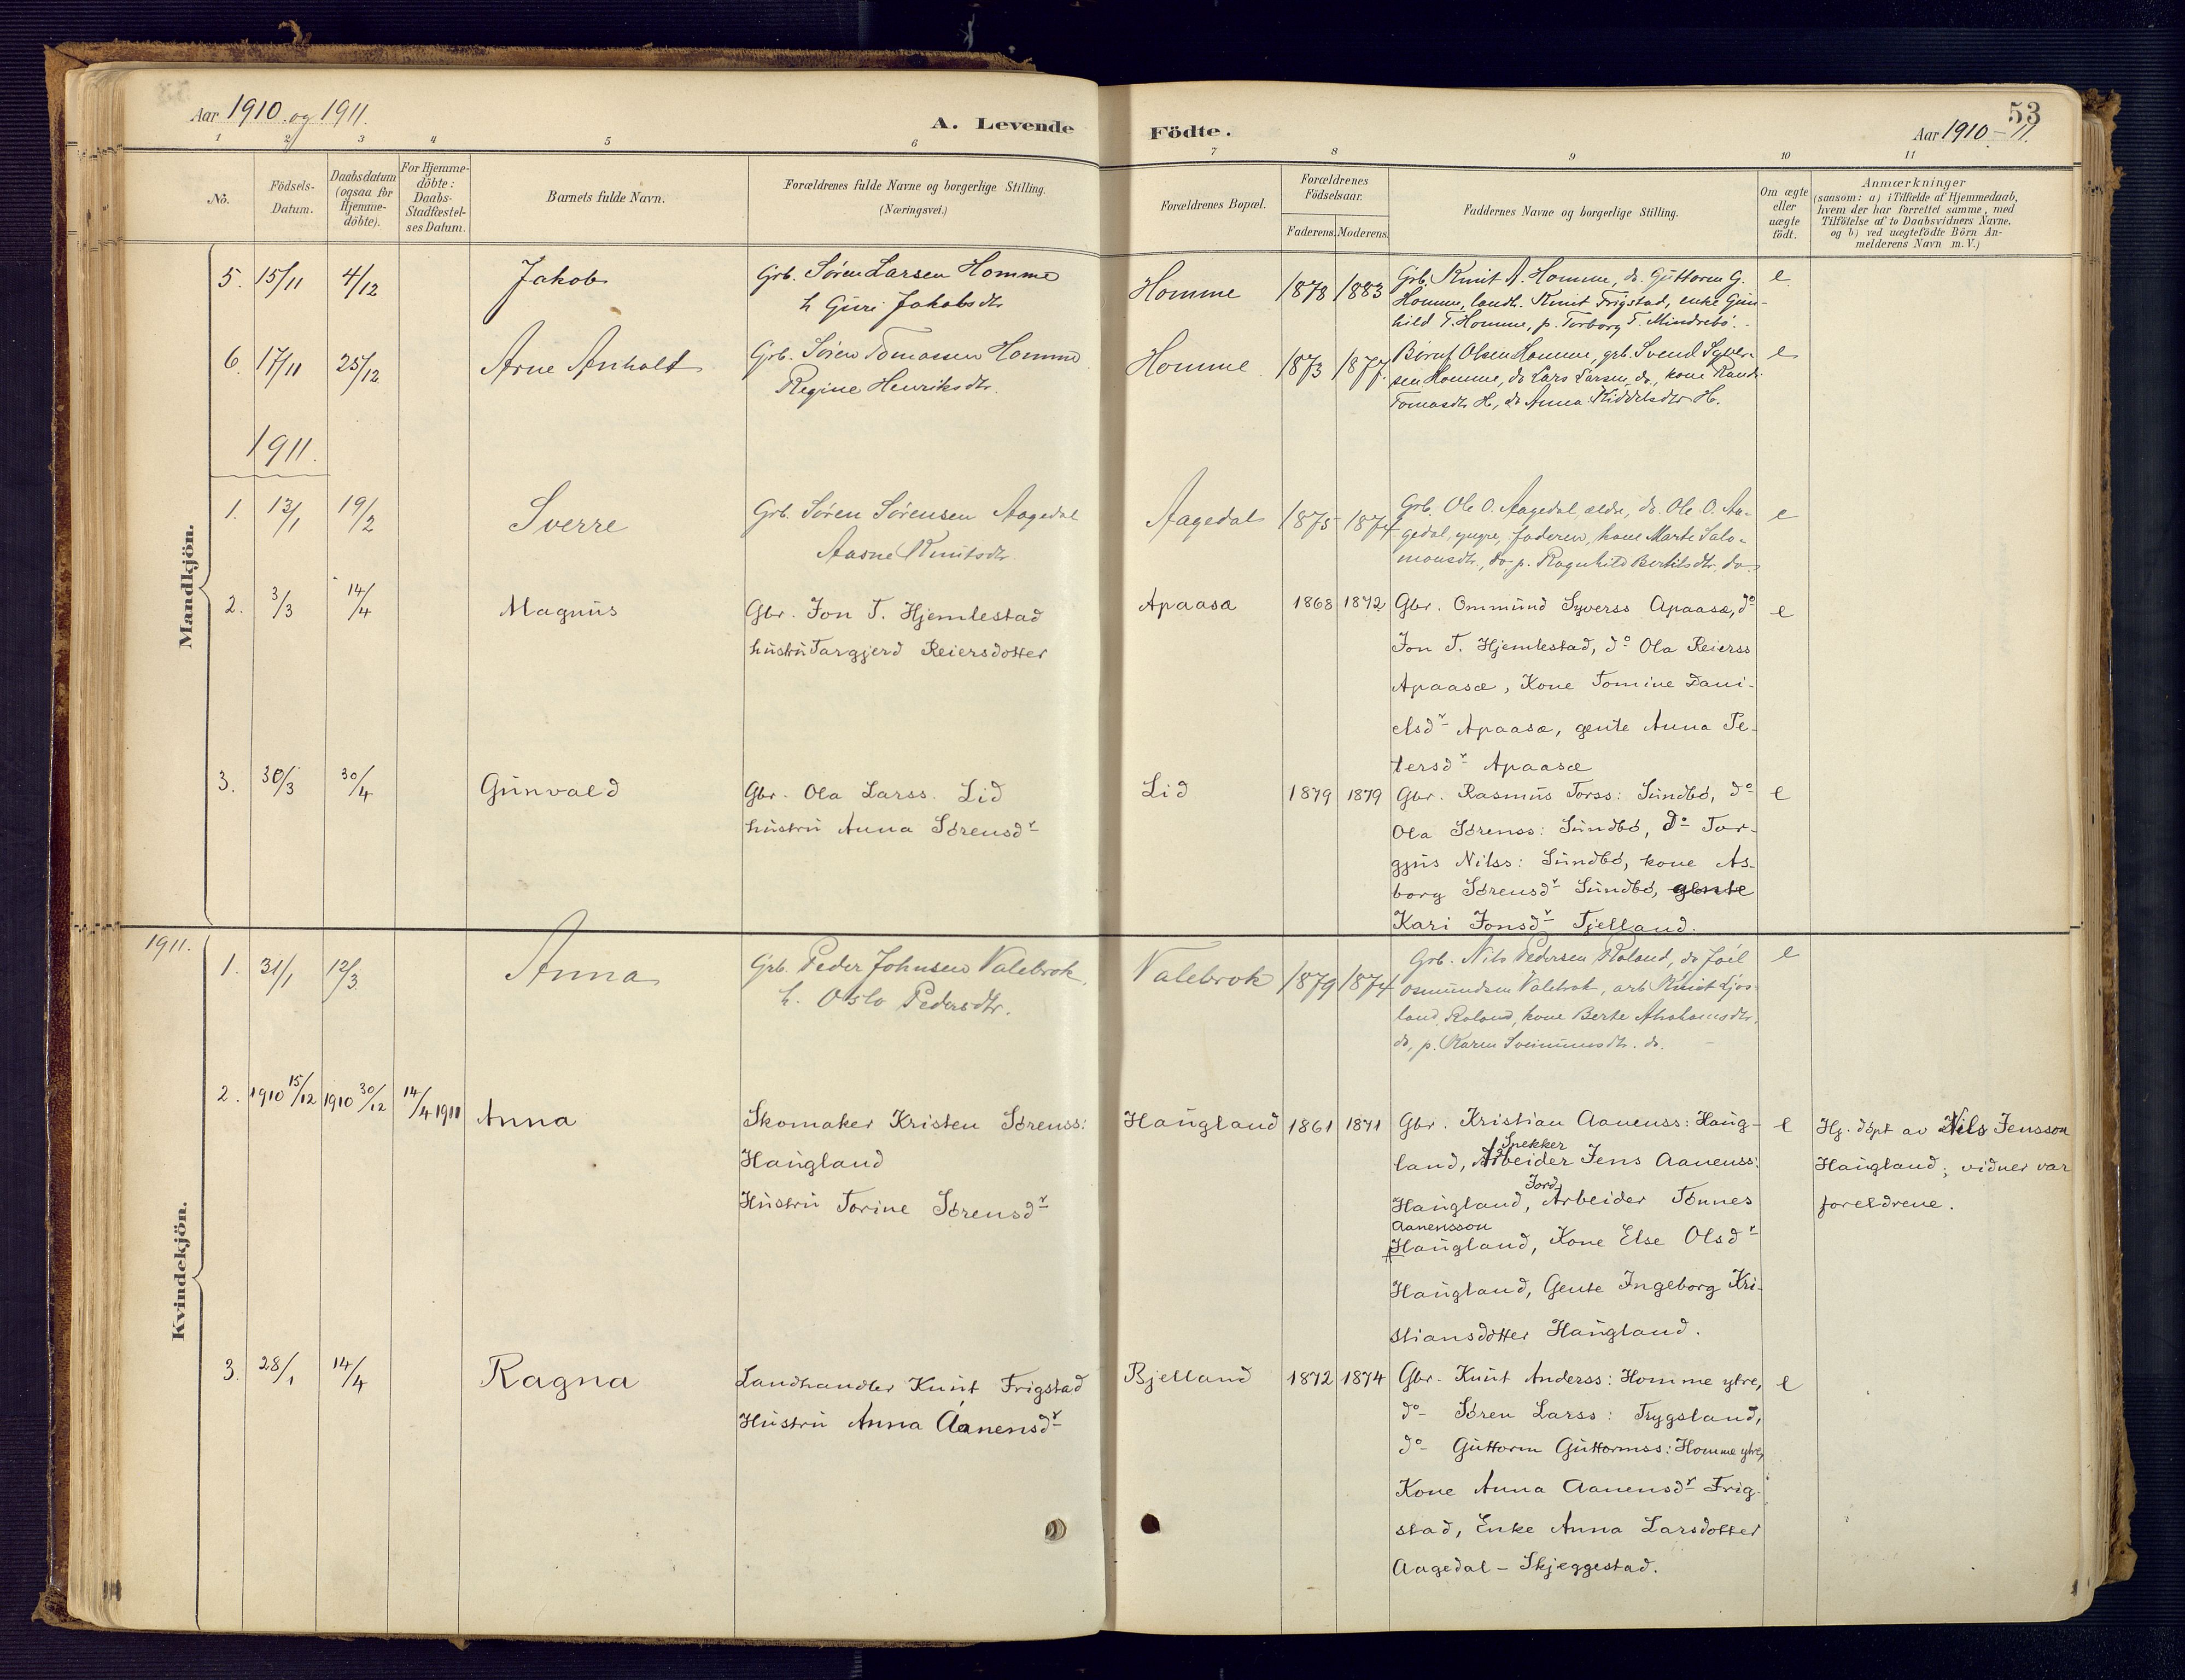 Aar 1910 og 1911.
A. Levende Födte.
53
Aar 1910-11.
1 2 3 4 5 6 7 8 9 10 11
No.
Födsels-Datum.
Daabsdatum (ogsaa for Hjemme-döbte).
For Hjemme-döbte: Daabs-Stadfæstel-ses Datum.
Barnets fulde Navn.
Forældrenes fulde Navne og borgerlige Stilling.
(Næringsvei.)
Forældrenes Bopæl.
Forældrenes Födselsaar.
Faderens. Moderens.
Faddernes Navne og borgerlige Stilling.
Om ægte eller uægte födt.
Anmærkninger
(saasom: a) i Tilfælde af Hjemmedaab,
hvem der har forrettet samme, med
Tilföielse af to Daabsvidners Navne,
og b) ved uægtefödte Börn An-
melderens Navn m. V.)
Mandkjön.
5. 15/11 4/12 Jakob Grb. Sören Larsen Homme
h Guri Jakobsdtr
Homme 1878 1883
Grb. Knut A. Homme, do. Guttorm G.
Homme, landh. Knut Frigstad, enke Gun-
hild T. Homme, p. Torborg T. Mindrebö.
e
6. 17/11 25/12 Arne Anholt Grb. Sören Tomassen Homme
Regine Henriksdtr.
Homme 1873 1877
Olsen Homme, grb. Svend Syver-
sen Homme, do Lars Larsen do., kone Randi
Tomasdtr H., do Anna H.
e
1911.
1. 13/1 19/2 Sverre Grb. Sören Sörensen Aagedal
Aasne Knutsdtr.
Aagedal 1875 1874
Grb. Ole O. Aagedal ældre, do. Ole O. Aa-
gedal, yngre, faderen, kone Marte Salo-
monsdtr., do, p. Ragnhild Bertilsdtr. do.
e
2. 3/3 14/4 Magnus Gbr. Jon T. Hjemlestad
hustru Targjerd Reiersdotter
Apaasæ 1868 1872
Gbr. Ommund Syverss Apaasæ, do
Jon T. Hjemlestad, do Ola Reierss
Apaasæ, Kone Tomine Dani-
elsdr Apaasæ, gente Anna Pe-
tersdr Apaasæ
e
3. 30/3 30/4 Gunvald Gbr. Ola Larss. Lid
hustru Anna Sörensdr
Lid 1879 1879
Gbr. Rasmus Torss: Sundbö, do
Ola Sörenss: Sundbö, do Tor-
gjus Nilss: Sundbö, kone As-
borg Sörensdr Sundbö, gente
Kari Jonsdr Tjelland.
e
Kvindekjön.
1911.
1. 31/1 12/3 Anna Grb. Peder Johnsen Valebrok.
h. Oslo Pedersdtr.
Valebrok 1879 1874
Grb. Nils Pedersen Roland, do Joël
Osmundsen Valebrok, arb Knut Ljos-
land Roland, kone Berte Abrahamsdtr.
do, p. Karen do.
e
2. 1910 15/12 1910 30/12 14/4 1911 Anna Skomaker Kristen Sörenss:
Haugland
Hustru Torine Sörensdr
Haugland 1861 1871
Gbr. Kristian Aanenss: Haug-
land, Snekker Arbeider Jens Aanenss:
Haugland, Jord Arbeider Tönnes
Aanensson
Haugland, Kone Else Olsdr
Haugland, Gente Ingeborg Kri-
stiansdotter Haugland.
e
Hj. döpt av Nils Jensson
Haugland; vidner var
foreldrene.
3. 28/1 14/4 Ragna Landhandler Knut Frigstad
Hustru Anna Aanensdr
Bjelland 1872 1874
Gbr. Knut Anderss: Homme ytre,
do Sören Larss: Trygsland,
do Guttorm Guttormss: Homme ytre,
Kone Anna Aanensdr Frig-
stad, Enke Anna Larsdotter
Aagedal - Skjeggestad.
e